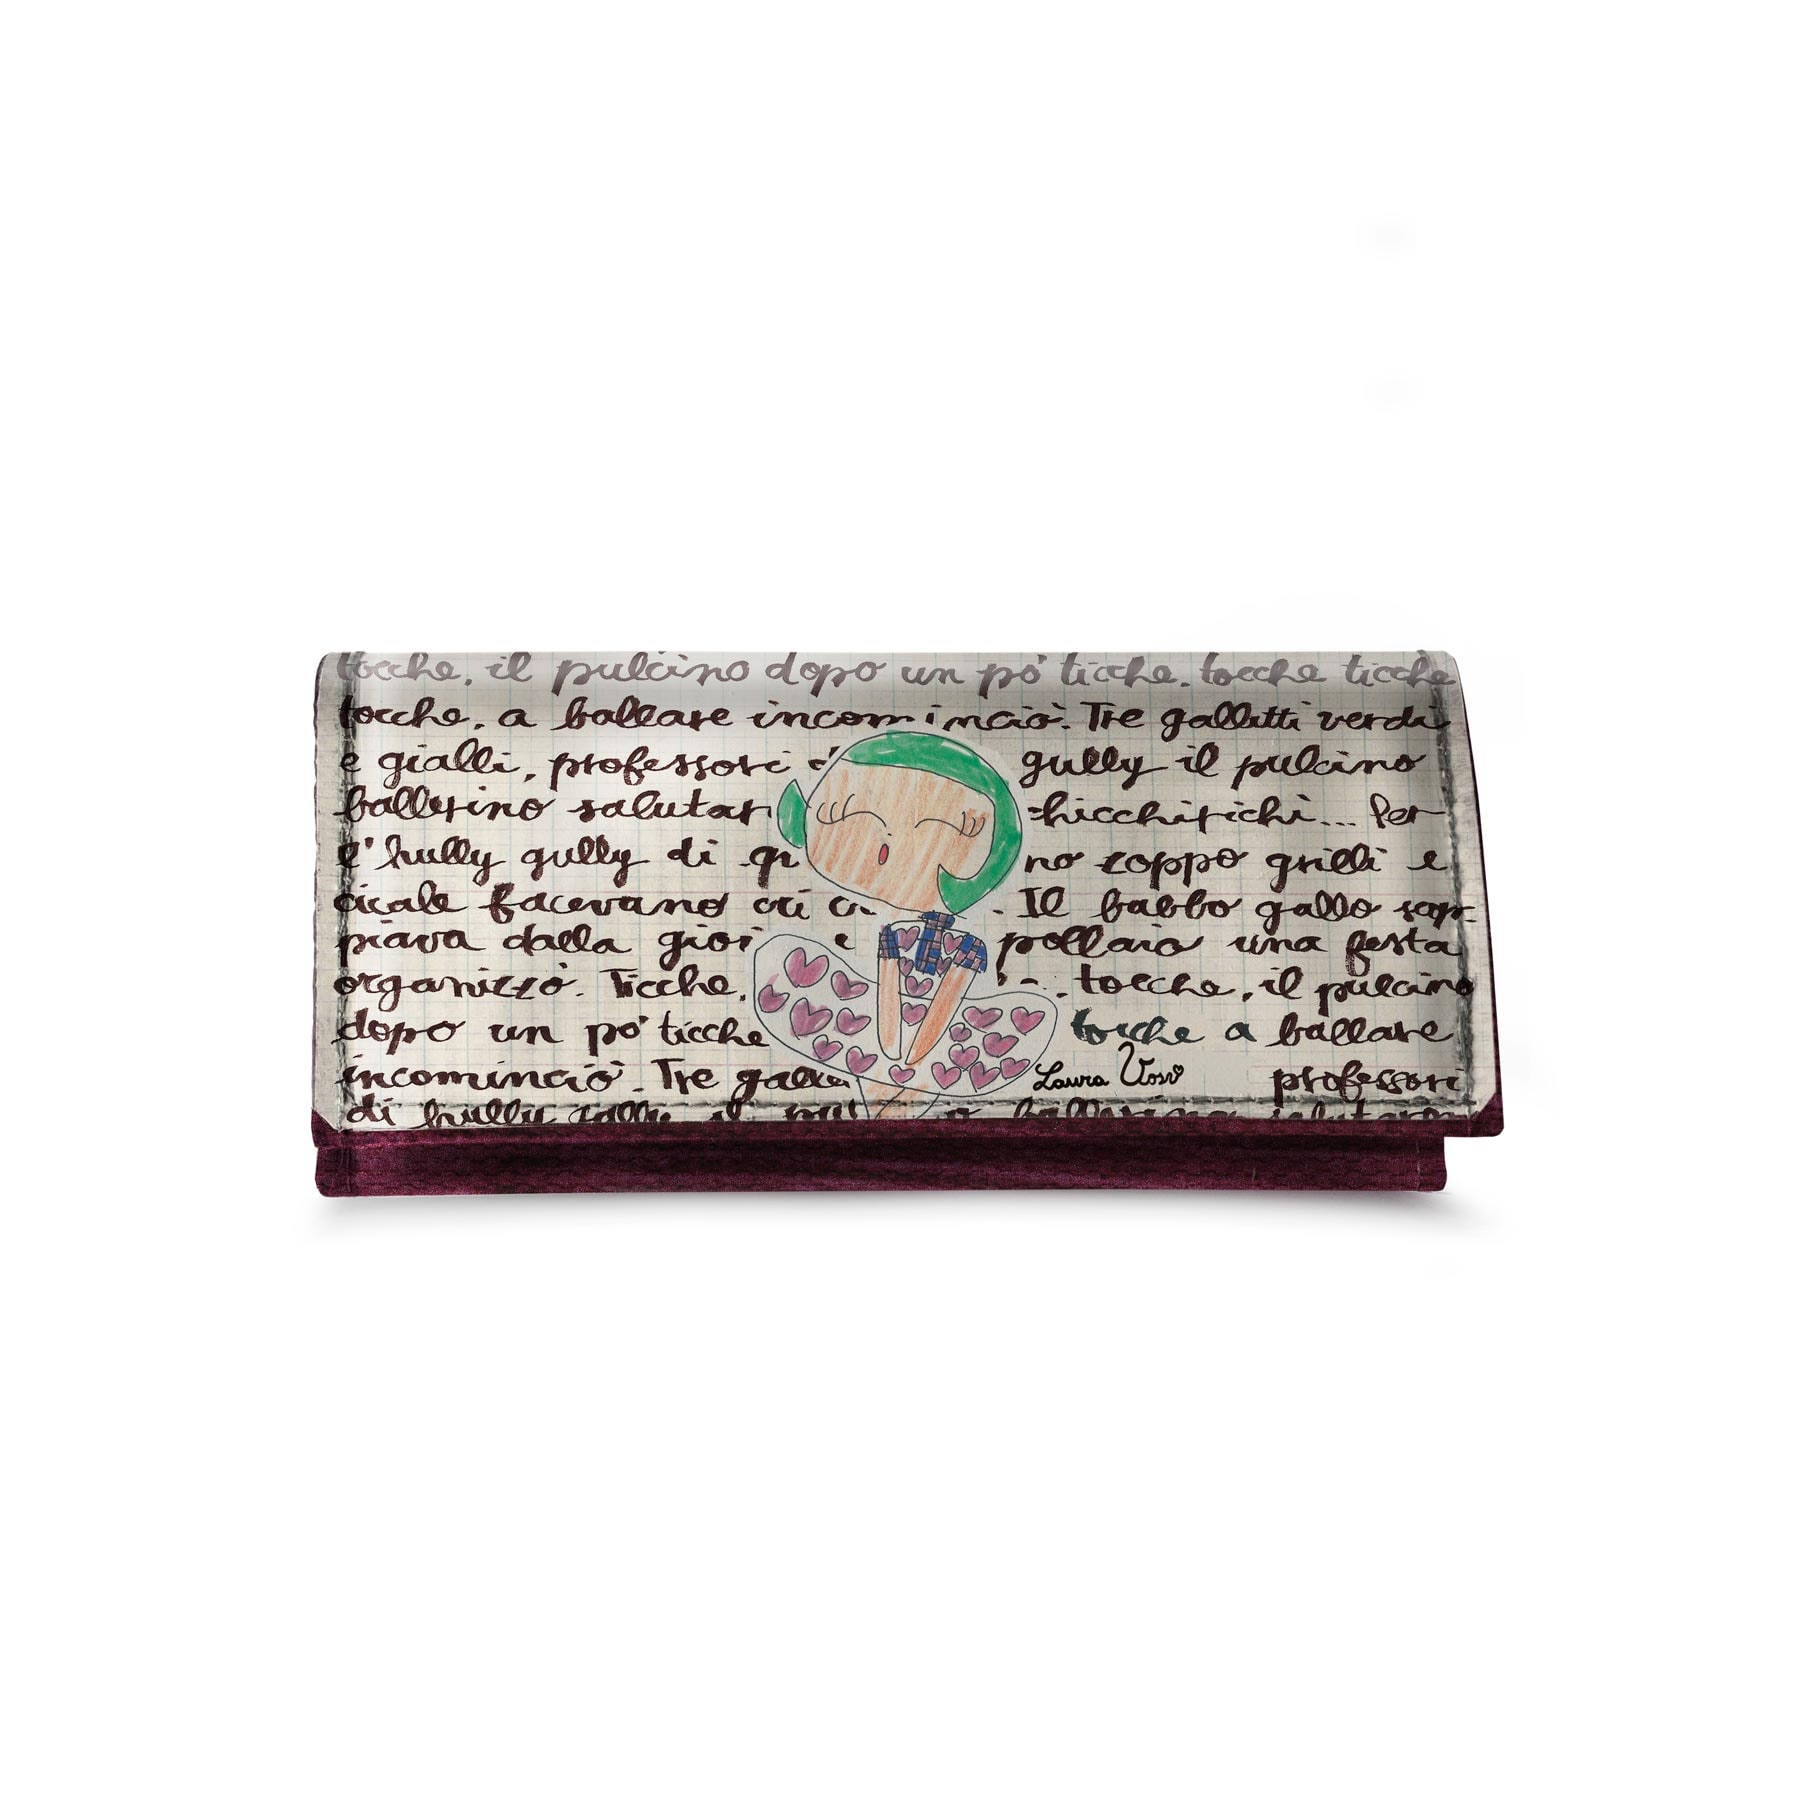 tocche, il pulcino dopo un po' ticche, tocche ticche
tocche, a ballare incom inciò. Tre galletti verdi
e gialli, professori d gully il pulcino
ballerino salutar chicchirichi... Per
l'hully gully di qu no zoppo grilli e
cicale facevano cri cr . Il babbo gallo scop-
piava dalla gioi e pollaio una festa
organizzò. Ticche, ... tocche, il pulcino
dopo un po' ticche tocche a ballare
incominciò. Tre galle professori
di hully gully il pul o ballerino salutaron
Laura